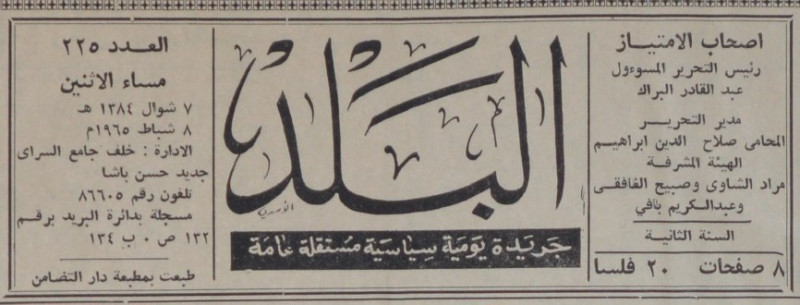 اصحاب الامتياز
رئيس التحرير المسوءول
عبد القادر البراك
مدير التحريـر
المحامى صلاح الدين ابراهيم
الهيئة المشرفة
مراد الشاوى وصبيح الغافقى
وعبدالكريم بافي
السنة الثانية
٨ صفحات ٢٠ فلسا
البلد
جريدة يومية سياسية مستقلة عامة
العـدد ٢٢٥
مساء الاثنين
٧ شوال ١٣٨٤ هـ
٨ شباط ١٩٦٥م
الادارة : خلف جامع السراى
جديد حسن باشا
تلفون رقم ٨٦٦٠٥
مسجلة بدائرة البريد برقم
١٣٢ ص ٠ ب ١٣٤
طبعت بمطبعة دار التضامن